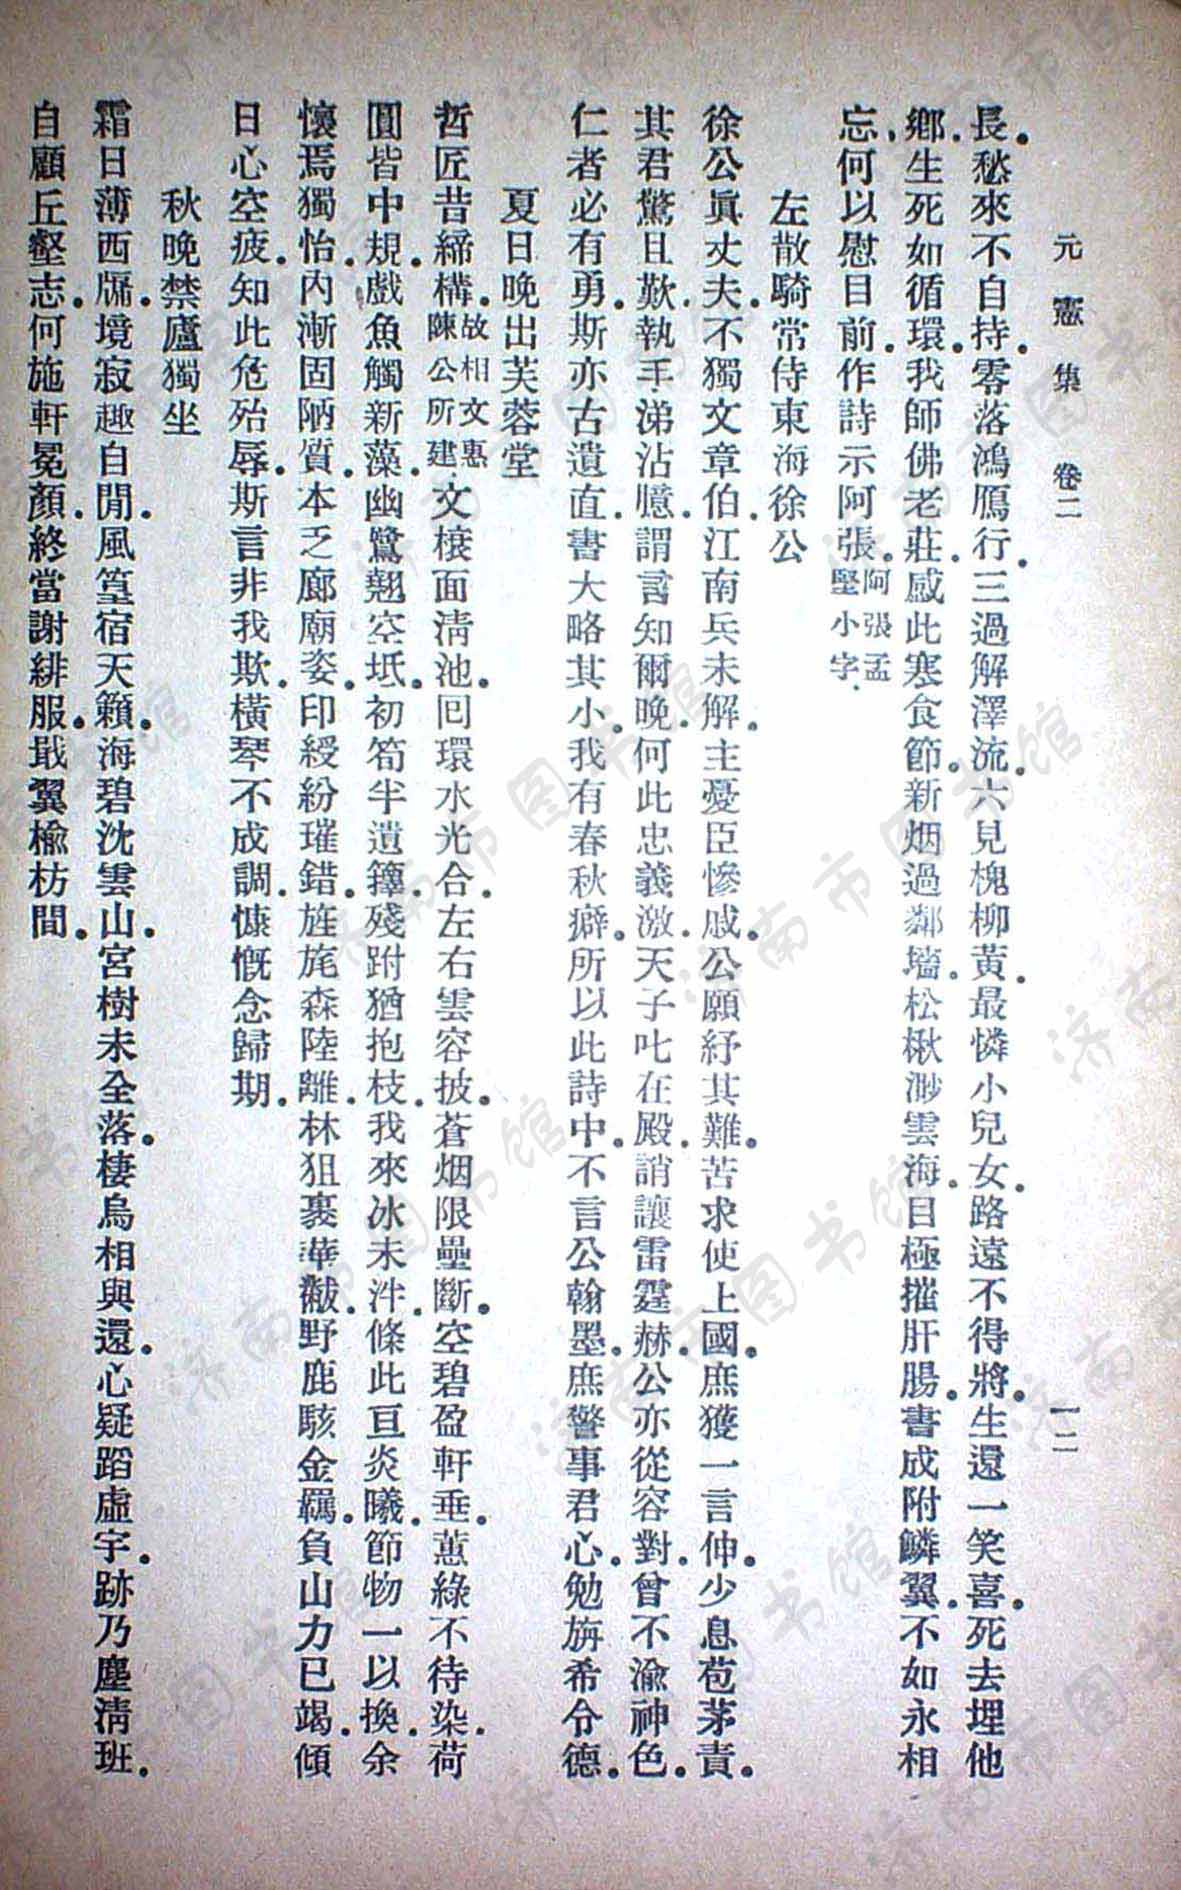 元憲集 卷二 一二
長。愁來不自持。零落鴻鴈行。三過解澤流。六見槐柳黃。最憐小兒女。路遠不得將。生還一笑喜。死去埋他
鄉。生死如循環。我師佛老莊。感此寒食節。新烟過鄰墻。松楸渺雲海。目極摧肝腸。書成附鱗翼。不如永相
忘。何以慰目前。作詩示阿張。阿張孟堅小字。
左散騎常侍東海徐公
徐公眞丈夫。不獨文章伯。江南兵未解。主憂臣慘戚。公願紓其難。苦求使上國。庶獲一言伸。少息苞茅責。
其君驚且歎。執手涕沾臆。謂言知爾晚。何此忠義激。天子叱在殿。誚讓雷霆赫。公亦從容對。曾不渝神色。
仁者必有勇。斯亦古遺直。書大略其小。我有春秋癖。所以此詩中。不言公翰墨。庶警事君心。勉旃希令德。
夏日晚出芙蓉堂
哲匠昔締構。故相文惠陳公所建 文榱面淸池。囘環水光合。左右雲容披。蒼烟限壘斷。空碧盈軒垂。蕙綠不待染。荷
圓皆中規。戲魚觸新藻。幽鷺翹空坻。初筍半遺籜。殘跗猶抱枝。我來冰未泮。條此亘炎曦。節物一以換。余
懷焉獨怡。內漸固陋質。本乏廊廟姿。印綬紛璀錯。旌旄森陸離。林狙裹華黻。野鹿駭金羈。負山力已竭。傾
日心空疲。知此危殆辱。斯言非我欺。橫琴不成調。慷慨念歸期。
秋晚禁廬獨坐
霜日薄西牖。境寂趣自閒。風篁宿天籟。海碧沈雲山。宮樹未全落。棲烏相與還。心疑蹈虛宇。跡乃塵淸班。
自顧丘壑志。何施軒冕顏。終當謝緋服。戢翼楡枋間。